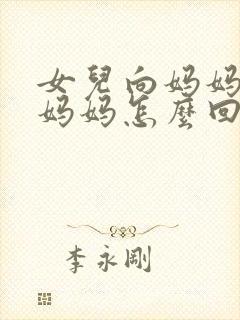 女兒向媽媽
媽媽怎麼回
李永剛